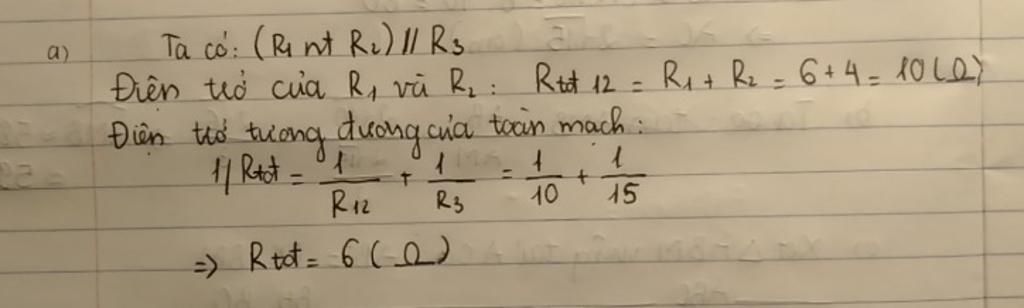 a) Ta có: (R₁ nt R₂) // R₃
Điện trở của R₁ và R₂: Rtđ 12 = R₁ + R₂ = 6 + 4 = 10 (Ω)
Điện trở tương đương của toàn mạch:
1/Rtđ = 1/R₁₂ + 1/R₃ = 1/10 + 1/15
=> Rtđ = 6 (Ω)